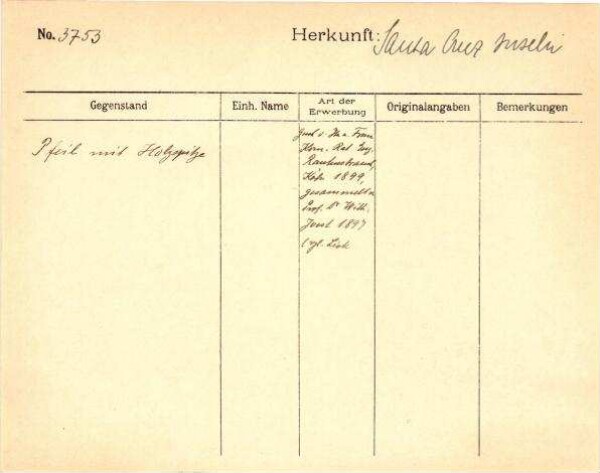 No. 3753
Herkunft: Santa Cruz Inseln
Gegenstand
Einh. Name
Art der Erwerbung
Originalangaben
Bemerkungen
Pfeil mit Holzspitze
Frau
Kom. Rat Eug.
Rautenstrauch,
Köln 1899,
gesammelt v.
Prof. Dr Wilh.
Joest 1897